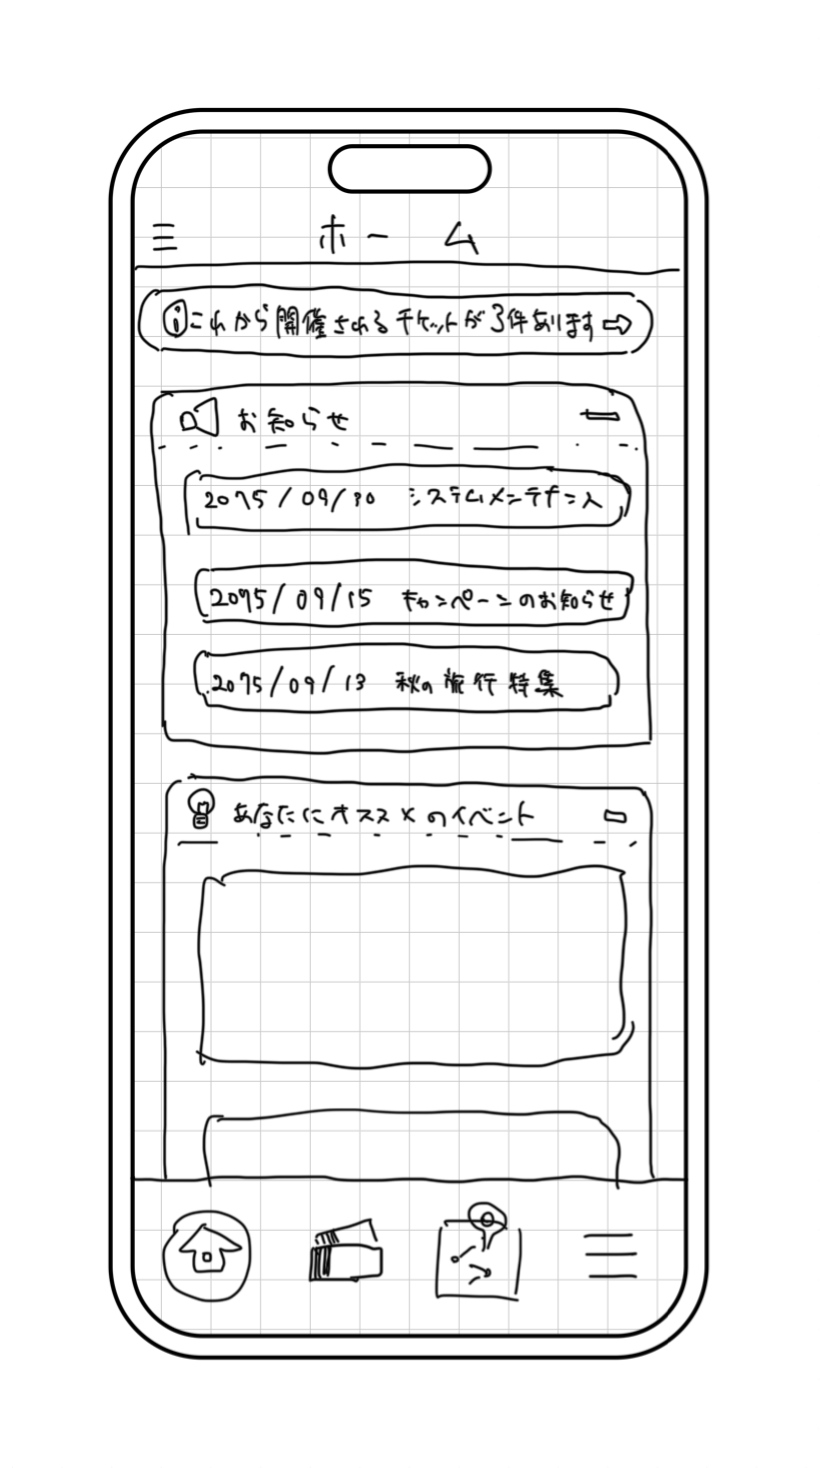 ホーム
これから開催されるチケットが3件あります
お知らせ
2075/09/30 システムメンテナンス
2075/09/15 キャンペーンのお知らせ
2075/09/13 秋の旅行特集
あなたにオススメのイベント